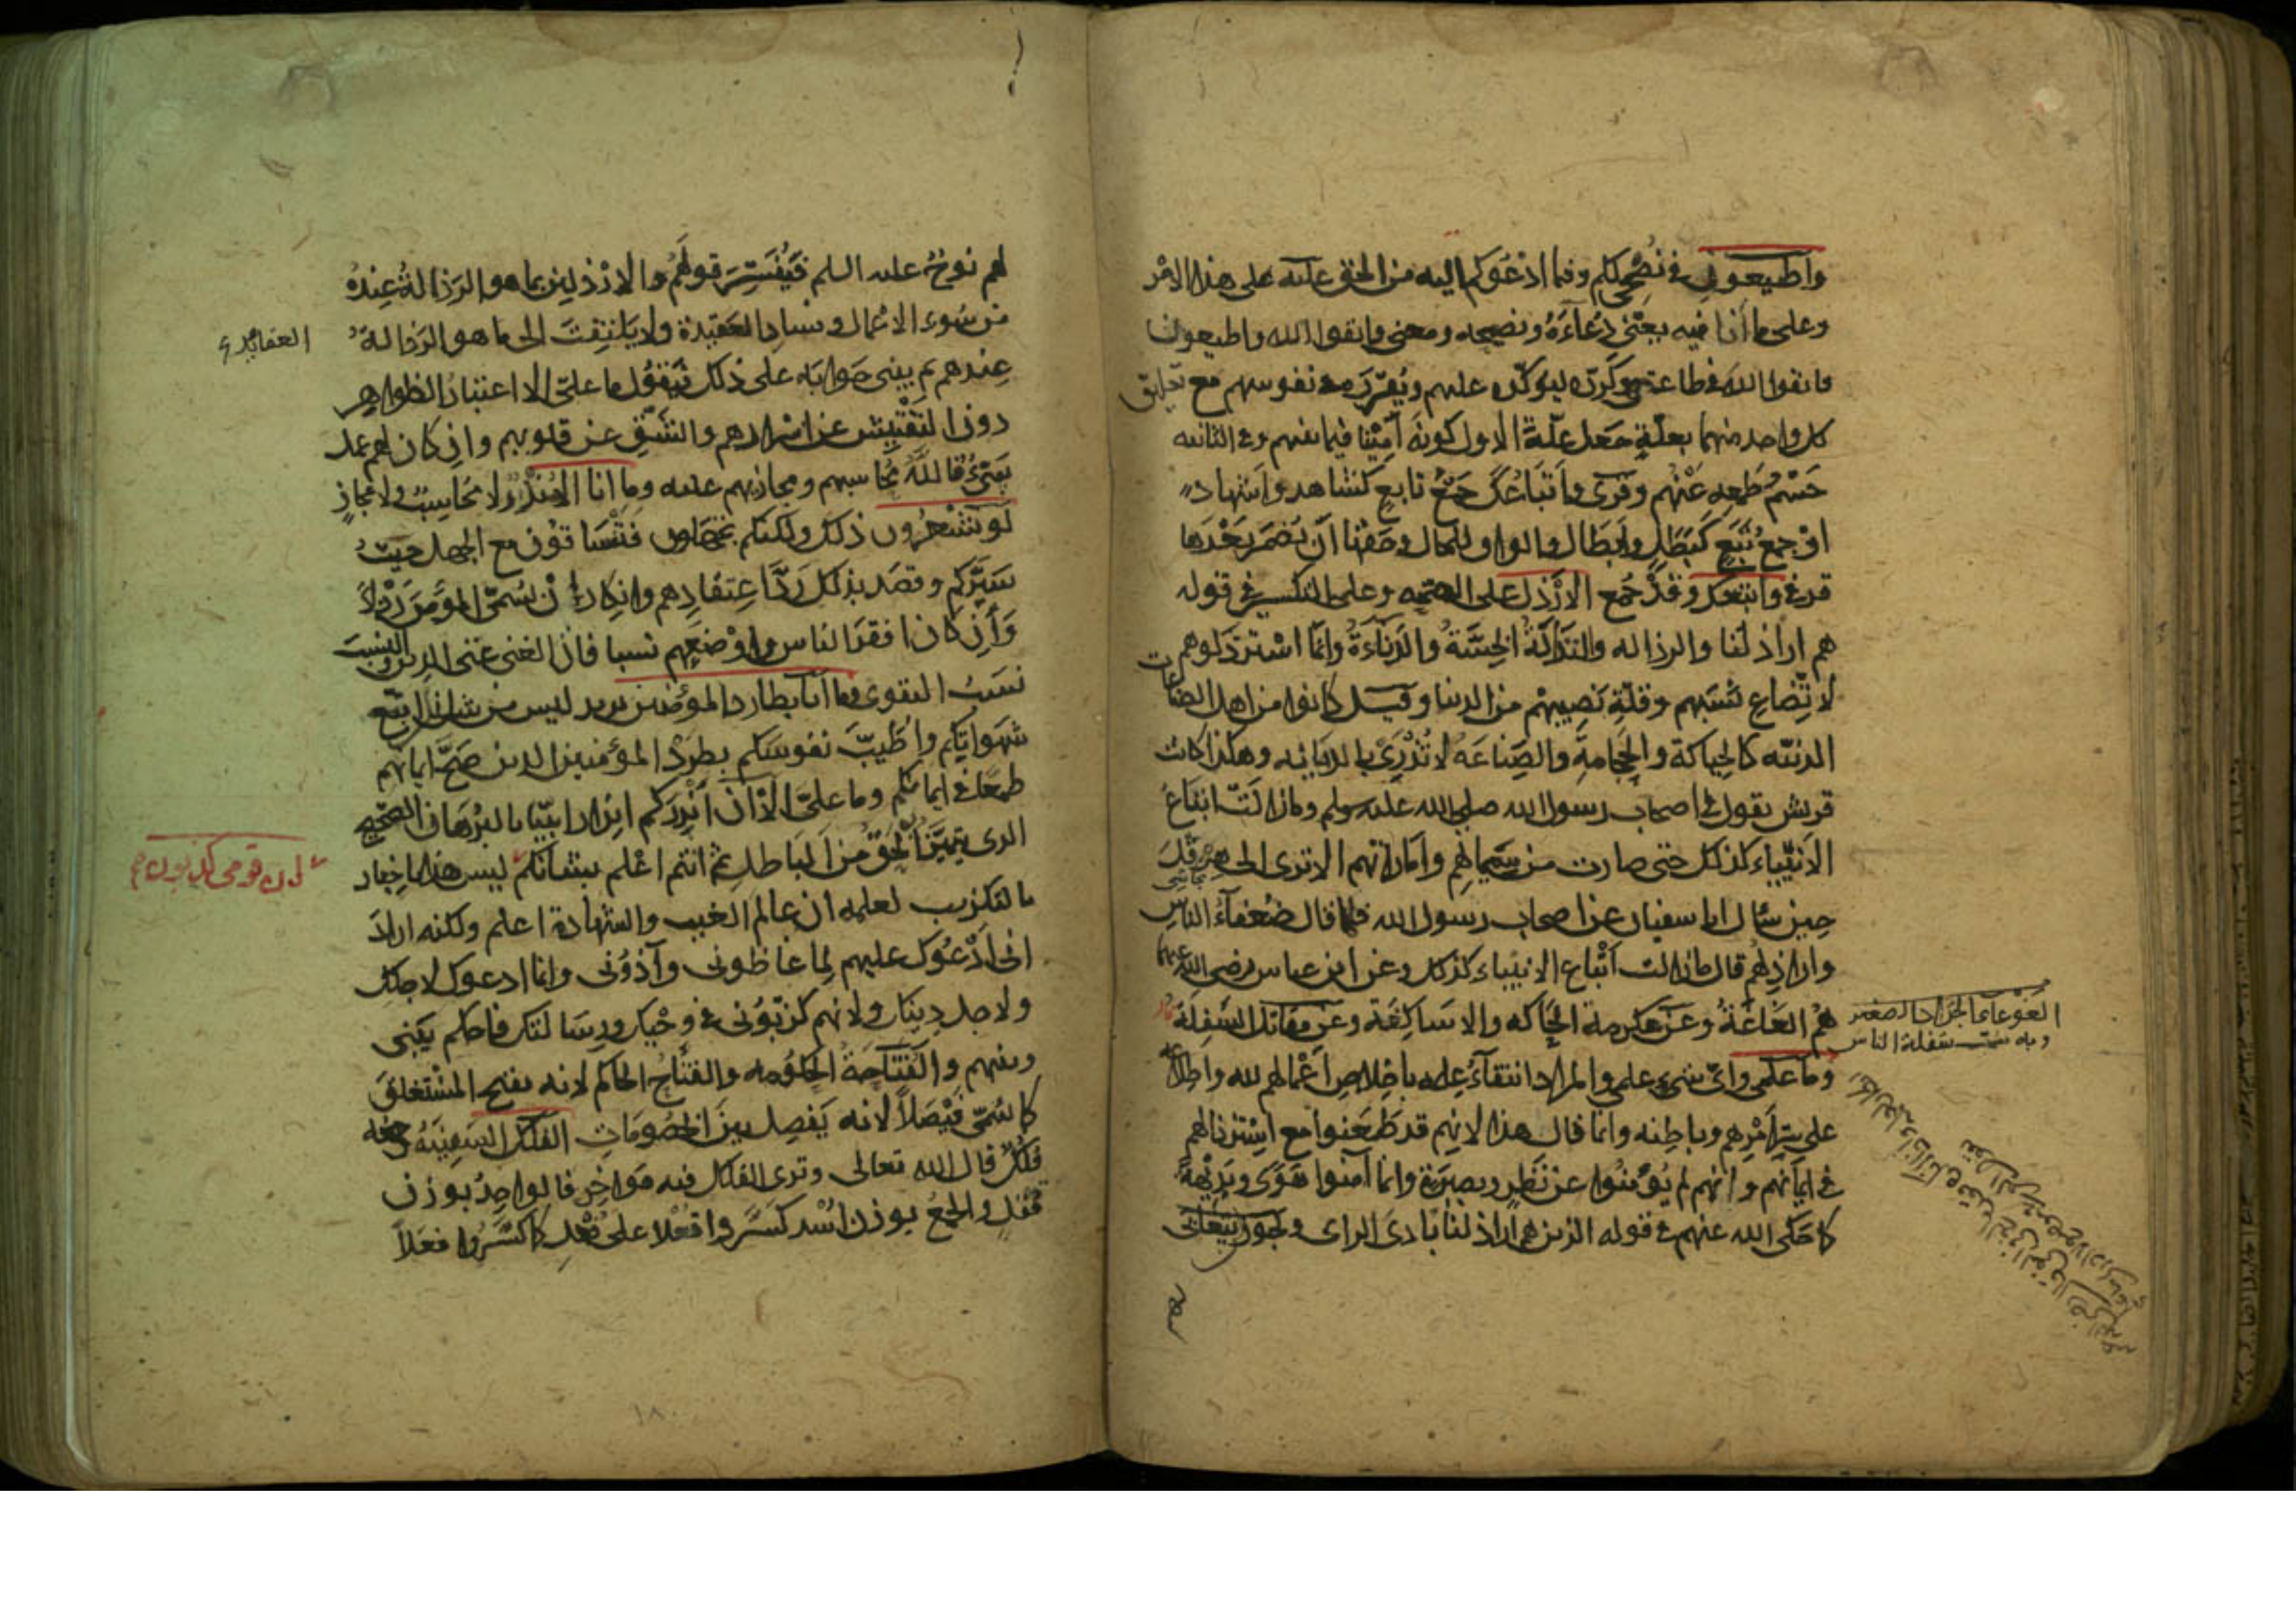 واطيعون في نصحي لكم وفيما ادعوكم اليه من الحق عليه على هذا الامر
وعلى ما أنا فيه يعني دعاءه ونصيحه ومعنى فاتقوا الله واطيعون
فاتقوا الله في طاعتي وكرره ليؤكده عليهم ويقرره في نفوسهم مع تعليق
كل واحد منهما بعلة جعل علة الاول كونه أمينا فيما بينهم وفي الثانية
حسم طمعه عنهم وقرئ وأتباعك جمع تابع كشاهد وأشهاد
او جمع تبع كبطل وأبطال والواو للحال وحقها أن يضمر بعدها
قد في واتبعك وقد جمع الارذل على الصحة وعلى التكسير في قوله
هم اراذلنا والرذالة والنذالة الخسة والدناءة وانما استرذلوهم
لاتضاع نسبهم وقلة نصيبهم من الدنيا وقيل كانوا من اهل الصناعات
الدنية كالحياكة والحجامة والصناعة لا تزري بالديانة وهكذا كانت
قريش تقول في اصحاب رسول الله صلى الله عليه وسلم وما زالت اتباع
الانبياء كذلك حتى صارت من سيماهم وأماراتهم الا ترى الى هرقل
حين سأل ابا سفيان عن اصحاب رسول الله فلما قال ضعفاء الناس
واراذلهم قال ما زالت أتباع الانبياء كذلك وعن ابن عباس رضي الله عنهما
هم الغاغة وعن عكرمة الحاكة والاساكفة وعن مقاتل السفلة
وما علمي وأي شيء علمي والمراد انتفاء علمه باخلاص أعمالهم لله واطلاعه
على سر أمرهم وباطنه وانما قال هذا لانهم قد طعنوا مع استرذالهم
في ايمانهم وانهم لم يؤمنوا عن نظر وبصيرة وانما آمنوا هوى وبديهة
كما حكى الله عنهم في قوله الذين هم اراذلنا بادي الراي ويجوز أن يتغابى
الغوغا
وبه سميت سفلة الناس
لهم نوح عليه السلم فيفسر قولهم الارذلين بما هو الرذالة عنده
من سوء الاعمال وفساد العقيدة ولا يلتفت الى ما هو الرذالة
عندهم ثم يبني جوابه على ذلك فيقول ما علي الا اعتبار الظواهر
دون التفتيش عن اسرارهم والشق عن قلوبهم وان كان لهم عمل
سيئ فالله محاسبهم ومجازيهم عليه وما انا الا منذر لا محاسب ولا مجاز
لو تشعرون ذلك ولكنكم تجهلون فتنساقون مع الجهل حيث
سيركم وقصد بذلك رد اعتقادهم وانكار أن يسمى المؤمن رذلا
وإن كان افقر الناس واوضعهم نسبا فان الغنى غنى الدين والنسب
نسب التقوى وما أنا بطارد المؤمنين يريد ليس من شأني أن اتبع
شهواتكم واطيب نفوسكم بطرد المؤمنين الذين صح ايمانهم
طمعا في ايمانكم وما علي الا أن أنذركم انذارا بينا بالبرهان الصحيح
الذي يتميز به الحق من الباطل ثم انتم اعلم بشأنكم ليس هذا باخبار
بالتكذيب لعلمه ان عالم الغيب والشهادة اعلم ولكنه اراد
اني لا أدعوك عليهم لما غاظوني وآذوني وانما ادعوك لاجلك
ولاجل دينك ولانهم كذبوني في وحيك ورسالتك فاحكم بيني
وبينهم والفتاحة الحكومة والفتاح الحاكم لانه يفتح المستغلق
كما سمي فيصلا لانه يفصل بين الخصومات الفلك السفينة وجمعه
فلك قال الله تعالى وترى الفلك فيه مواخر فالواحد بوزن
قفل والجمع بوزن اسد كسروا فعلا على فعل كما كسروا فعلا
ان قومي كذبون
١٨٠